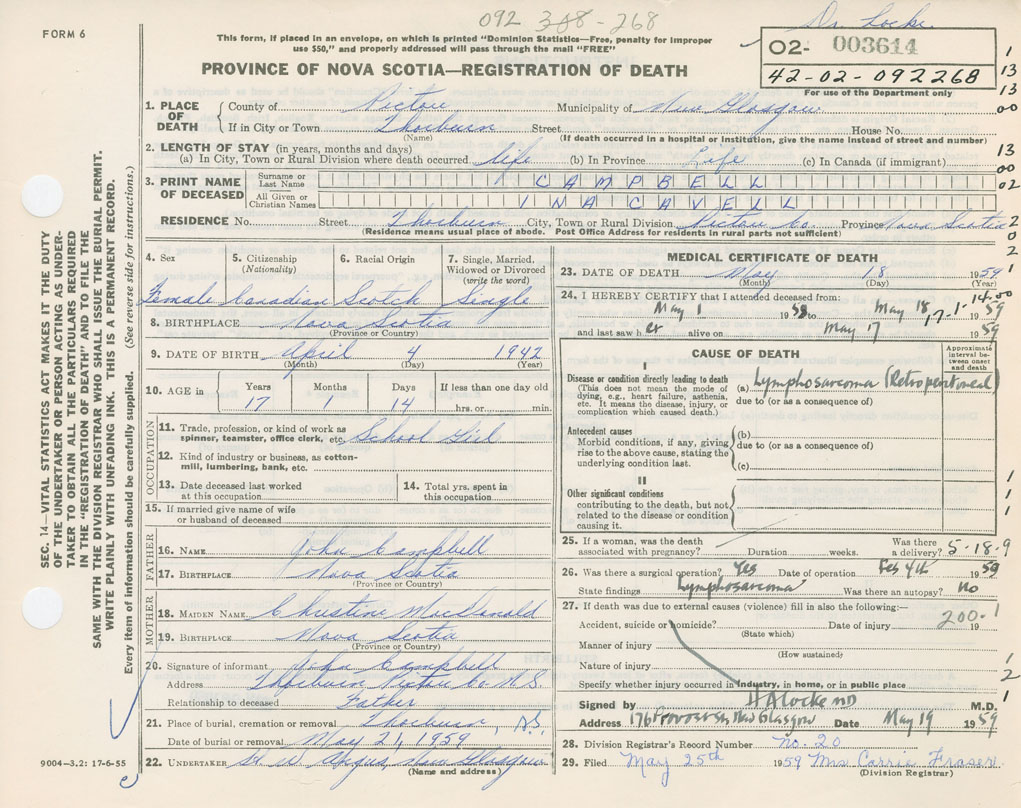 092 388-268
Dr. Locke
FORM 6
This form, if placed in an envelope, on which is printed "Dominion Statistics—Free, penalty for improper
use $50," and properly addressed will pass through the mail "FREE"
PROVINCE OF NOVA SCOTIA—REGISTRATION OF DEATH
02- 003614
42-02-092268
For use of the Department only
1. PLACE OF DEATH County of Pictou Municipality of New Glasgow
If in City or Town Thorburn Street House No.
(Name) (If death occurred in a hospital or institution, give the name instead of street and number)
2. LENGTH OF STAY (in years, months and days)
(a) In City, Town or Rural Division where death occurred life (b) In Province Life (c) In Canada (if immigrant)
3. PRINT NAME OF DECEASED Surname or Last Name CAMPBELL
All Given or Christian Names INA CAVELL
RESIDENCE No. Street Thorburn City, Town or Rural Division Pictou Co. Province Nova Scotia
(Residence means usual place of abode. Post Office Address for residents in rural parts not sufficient)
4. Sex 5. Citizenship (Nationality) 6. Racial Origin 7. Single, Married, Widowed or Divorced (write the word)
Female Canadian Scotch Single
8. BIRTHPLACE Nova Scotia
(Province or Country)
9. DATE OF BIRTH April 4 1942
(Month) (Day) (Year)
10. AGE in Years Months Days If less than one day old
17 1 14 hrs. or min.
OCCUPATION
11. Trade, profession, or kind of work as spinner, teamster, office clerk, etc. School Girl
12. Kind of industry or business, as cotton-
mill, lumbering, bank, etc.
13. Date deceased last worked at this occupation 14. Total yrs. spent in this occupation
15. If married give name of wife
or husband of deceased
FATHER
16. NAME John Campbell
17. BIRTHPLACE Nova Scotia
(Province or Country)
MOTHER
18. MAIDEN NAME Christine MacDonald
19. BIRTHPLACE Nova Scotia
(Province or Country)
20. Signature of informant John Campbell
Address Thorburn Pictou Co N.S.
Relationship to deceased Father
21. Place of burial, cremation or removal Thorburn, N.S.
Date of burial or removal May 21, 1959
22. UNDERTAKER Angus, New Glasgow
(Name and address)
MEDICAL CERTIFICATE OF DEATH
23. DATE OF DEATH May 18 1959
(Month) (Day) (Year)
24. I HEREBY CERTIFY that I attended deceased from:
May 1 1959 to May 18 1959
17-1-14.00
and last saw her alive on May 17 1959
CAUSE OF DEATH
Approximate interval between onset and death
I
Disease or condition directly leading to death (a) Lymphosarcoma (Retroperitoneal)
(This does not mean the mode of dying, e.g., heart failure, asthenia, etc. It means the disease, injury, or complication which caused death.)
due to (or as a consequence of)
Antecedent causes
Morbid conditions, if any, giving rise to the above cause, stating the underlying condition last.
(b)
due to (or as a consequence of)
(c)
II
Other significant conditions
contributing to the death, but not related to the disease or condition causing it.
25. If a woman, was the death associated with pregnancy? Duration weeks. Was there a delivery?
5-18-9
26. Was there a surgical operation? Yes Date of operation Feb 4th 1959
State findings Lymphosarcoma Was there an autopsy? no
27. If death was due to external causes (violence) fill in also the following:—
Accident, suicide or homicide? Date of injury 19
(State which)
200.1
Manner of injury
(How sustained)
Nature of injury
Specify whether injury occurred in industry, in home, or in public place
Signed by H A Locke MD M.D.
Address 176 Provost St, New Glasgow Date May 19 1959
28. Division Registrar's Record Number no. 20
29. Filed May 25th 1959 Mrs Carrie Fraser
(Division Registrar)
SEC. 14—VITAL STATISTICS ACT MAKES IT THE DUTY
OF THE UNDERTAKER OR PERSON ACTING AS UNDER-
TAKER TO OBTAIN ALL THE PARTICULARS REQUIRED
IN THE "REGISTRATION OF DEATH" AND TO FILE THE
SAME WITH THE DIVISION REGISTRAR WHO SHALL ISSUE THE BURIAL PERMIT.
WRITE PLAINLY WITH UNFADING INK. THIS IS A PERMANENT RECORD.
Every item of information should be carefully supplied. (See reverse side for instructions.)
9004-3.2: 17-6-55
1
13
13
00
13
00
02
2
0
2
1
1
1
1
1
2
1